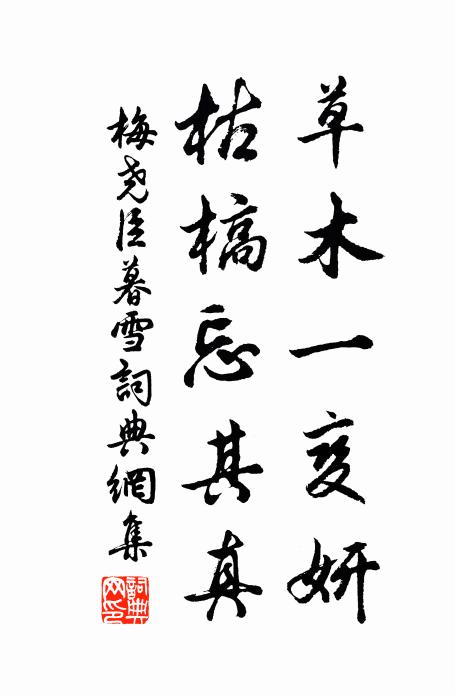 草木一变妍
枯槁忘其真
梅尧臣暮雪詞典網集
詞典网印